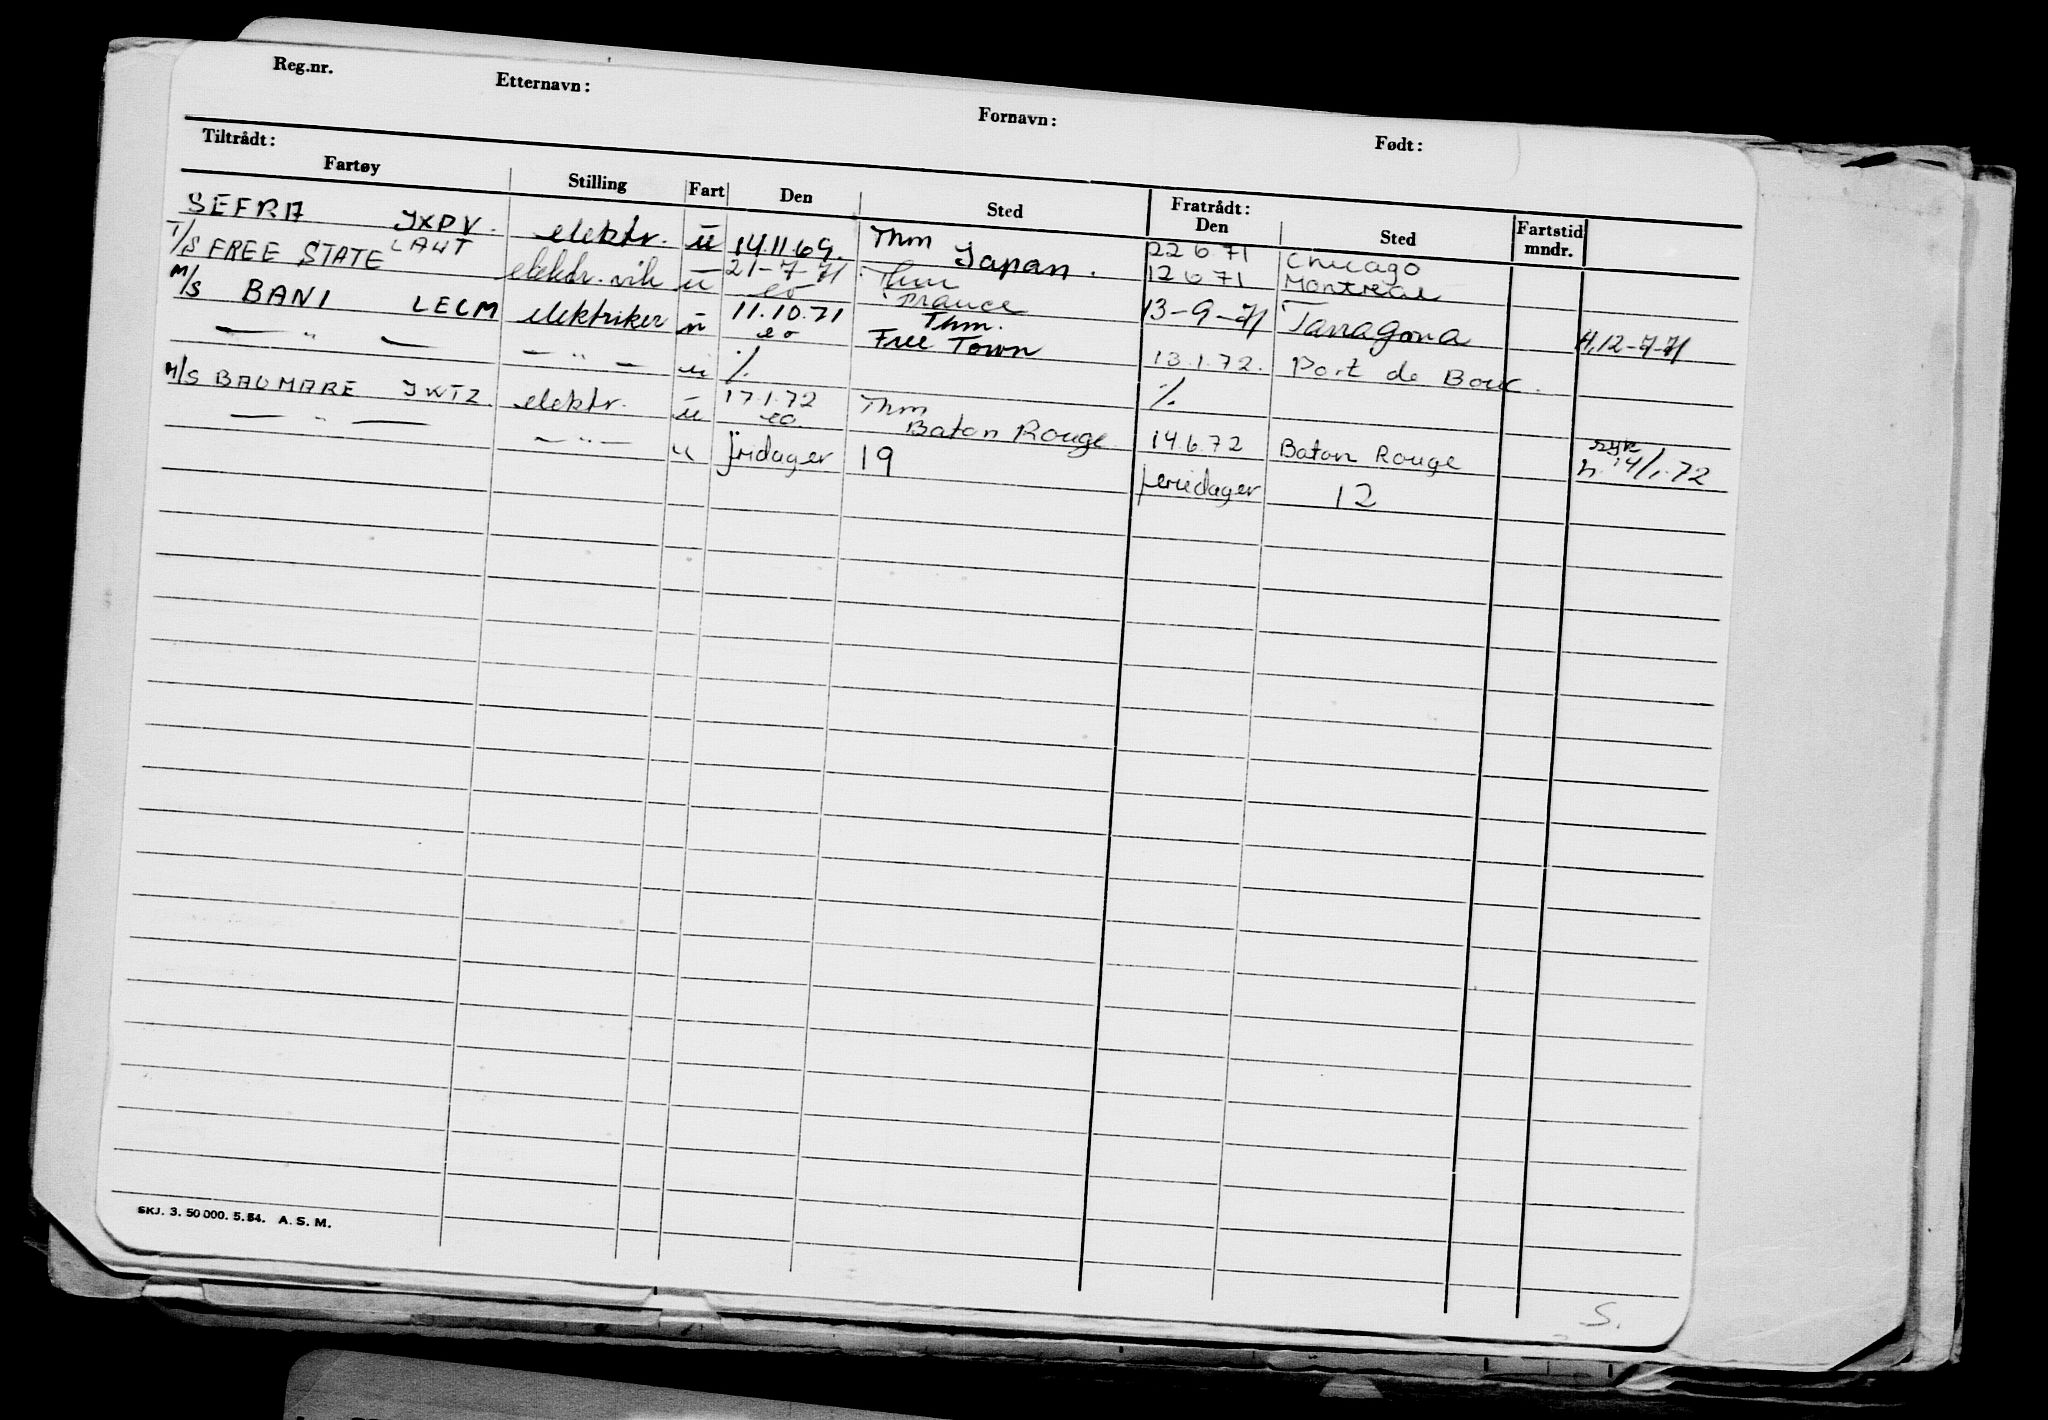 Reg.nr. Etternavn: Fornavn: Født:
Tiltrådt: Fratrådt:
Fartøy Stilling Fart Den Sted Den Sted Fartstid mndr.
SEFRA JXPV. elektr. u 14.11.69. Thm Japan. 22 6 71 Chicago
12 6 71 Montreal
T/S FREE STATE LAUT elektr. vik u 21-7-71 eo Thm France 13-9-71 Tarragona H. 12-7-71
M/S BANI LECM elektriker u 11.10.71 eo Thm. Free Town 13.1.72. Port de Bouc.
— " — — " — u % %
M/S BAUMARE JWTZ elektr. u 17.1.72 eo. Thm Baton Rouge 14.6.72 Baton Rouge syk h. 14/1-72
— " — — " — u fridager 19 feriedager 12
SKJ. 3. 50 000. 5. 54. A. S. M.
S.